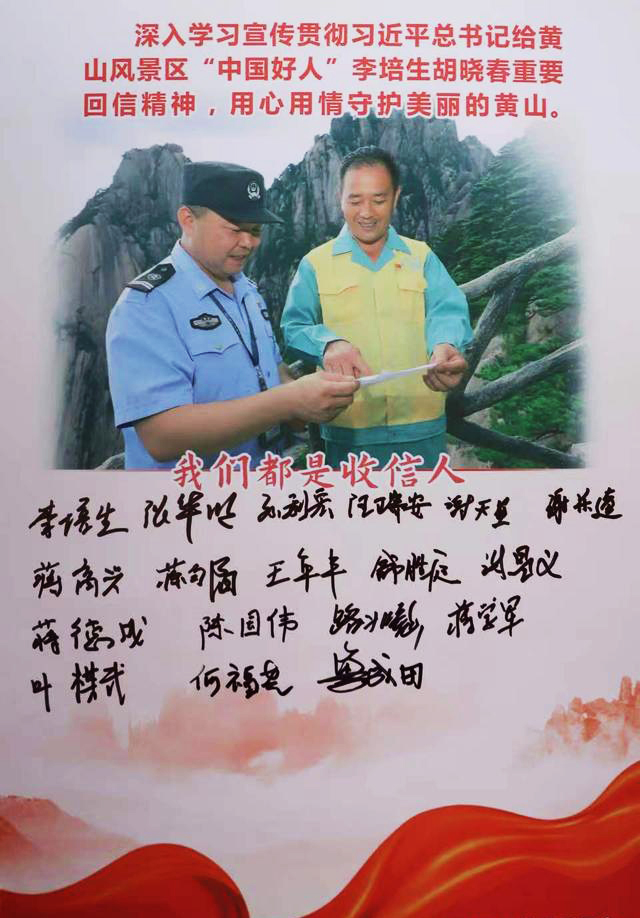 深入学习宣传贯彻习近平总书记给黄
山风景区“中国好人”李培生胡晓春重要
回信精神，用心用情守护美丽的黄山。
我们都是收信人
李培生 张华明 汪瑞安 谢天星
蒋高兴 王年丰 舒胜辰
蒋德成 陈国伟
叶 何福 田